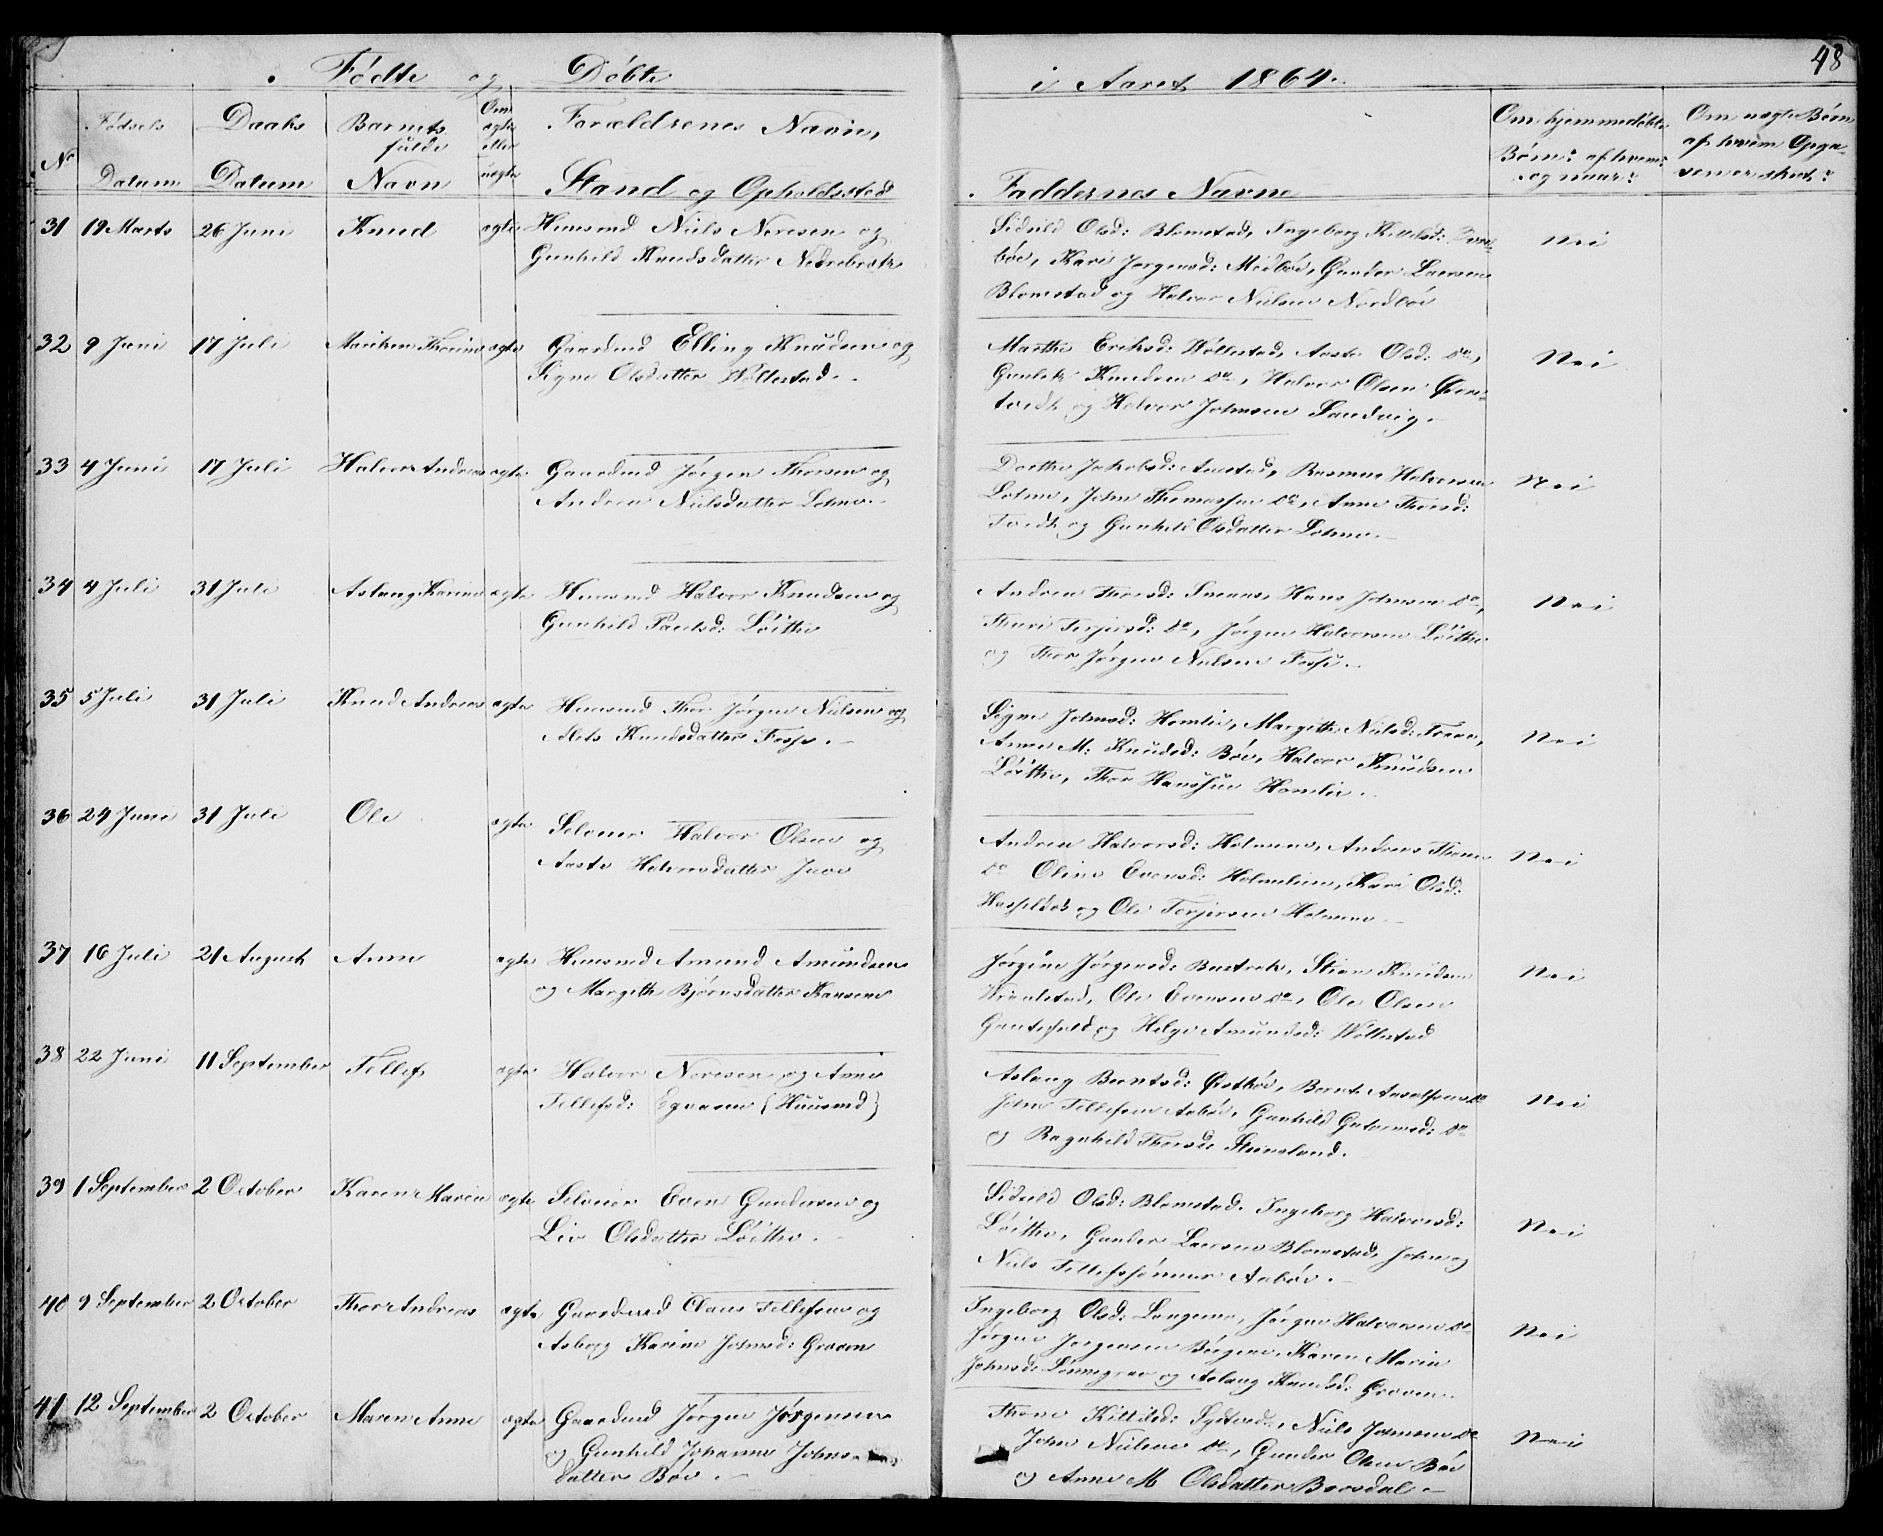 Fødte og Døbte i Aaret 1864.
48
No
Fødsels Datum
Daabs Datum
Barnets fulde Navn
Om ægte eller uægte
Forældrenes Navn,
Stand og Opholdssted
Faddernes Navne
Om hjemmedøbte
Børn: af hvem:
og naar:
Om uægte Børn
af hvem Opga-
ven er skeet:
31 19 Marts 26 Juni Knud ægte Huusmd Niels Neresen og
Gunhild Knudsdatter Nedrebrek
Sidsild Olsd: Blomstad, Ingeborg Kittelsd:
bøe, Kari Jørgensd: Midbøe, Gunder Laersen
Blomstad og Halvor Nielsen Nordbøe
Nei
32 9 Juni 17 Juli Mariken Thorine ægte Gaardmd Elling Knudsen og
Signe Olsdatter Wøllestad.
Marthe Eriksd: Wøllestad, Aaste Olsd: do,
Gunlek Knudsen do, Halvor Olsen
tvedt og Halvor Johnsen Sandvig.
Nei
33 4 Juni 17 Juli Halvor Andreas ægte Gaardmd Jørgen Thorsen og
Andrea Nielsdatter Lohne.
Dorthe Jakobsd: Aaestad, Rasmus Halvorsen
Lohne, John Thomassen do, Anne Thorsd:
Tvedt og Gunhild Olsdatter Lohne.
Nei
34 4 Juli 31 Juli Aslaug Karine ægte Huusmd Halvor Knudsen og
Gunhild Paulsd: Löithe
Andrea Thorsd: Snœus, Hans Johnsen do,
Thuri Terjesd: do, Jørgen Halvorsen Löithe
og Thor Jørgen Nielsen Fosse.
Nei
35 5 Juli 31 Juli Knud Andreas ægte Huusmd Thor Jørgen Nielsen og
Alets Knudsdatter Fosse.
Signe Johnsd: Homlie, Margith Nielsd:
Anne M: Knudsd: Bøe, Halvor Knudsen
Löithe, Thor Hanssen Homlie.
Nei
36 24 Juni 31 Juli Ole ægte Selveier Halvor Olsen og
Aaste Halvorsdatter Juve
Andrea Halvorsd: Holmene, Andreas
do Oline Evensd: Holmlien, Kari Olsd:
og Ole Terjersen Holmene
Nei
37 16 Juli 21 August Anne ægte Huusmd Amund Amundsen
og Margith Bjørnsdatter Kaasene
Jørgine Jørgensd: Bustrak, Stian Knudsen
Ole Evensen do, Ole Olsen
Gautefald og Helge Amundsd: Wøllestad
Nei
38 22 Juni 11 September Tellef ægte Halvor Neresen og Anne
Tellefsd: Egeraaen {Huusmd}
Aslaug Berntsd: Østbøe, Bernt do
John Tellefsen Aabøe, Gunhild Guttormsd: do
og Ragnhild Thorsd: Stensland.
Nei
39 1 September 2 October Karen Maria ægte Selveier Even Gundersen og
Liv Olsdatter Löithe.
Sidsild Olsd: Blomstad, Ingeborg Halvorsd:
Löithe, Gunder Laersen Blomstad, John og
Niels Tellefssønner Aabøe.
Nei
40 9 September 2 October Thor Andreas ægte Gaardmd Claus Tellefsen og
Asborg Karine Johnsd: Graven
Ingeborg Olsd: Langene, Jørgen Halvorsen do
Jørgen Jørgensen Börgen, Karen Maria
Johnsd: Lønnegrav og Aslaug Knudsd: Graven.
Nei
41 12 September 2 October Maren Anne ægte Gaardmd Jørgen Jørgensen
og Gunhild Johanne Johns-
datter Bøe.
Thone Kittilsd: Sydtved, Niels Johnsen do
John Nielsen do, Gunder Olsen Bøe
og Anne M Olsdatter Borsdal.
Nei